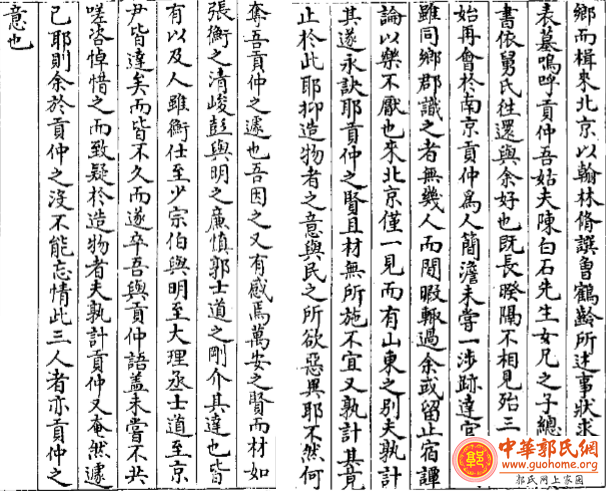 鄉而楫來北京以翰林脩譔魯鶴齡所述事狀求
表墓嗚呼貢仲吾姑夫陳白石先生女兄之子總
書依舅氏往還與余好也既長暌隔不相見殆三
始再會於南京貢仲爲人簡澹未嘗一涉跡達官
雖同鄉郡識之者無幾人而閒暇輒過余或留止宿譚
論以樂不厭也來北京僅一見而有山東之別夫孰計
其遂永訣耶貢仲之賢且材無所施不宜又孰計其竟
止於此耶抑造物者之意與民之所欲惡異耶不然何
奪吾貢仲之遽也吾因之又有感焉萬安之賢而材如
張衡之清峻彭與明之廉慎郭士道之剛介其達也皆
有以及人雖衡仕至少宗伯與明至大理丞士道至京
尹皆達矣而皆不久而遂卒吾與貢仲語蓋未嘗不共
嗟咨悼惜之而致疑於造物者夫孰計貢仲又奄然遽
已耶則余於貢仲之沒不能忘情此三人者亦貢仲之
意也
中華郭氏網
www.guohome.org
郭氏网上家園